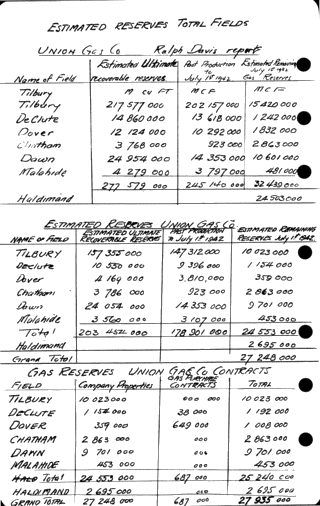 ESTIMATED RESERVES TOTAL FIELDS
UNION GAS CO Ralph Davis report
Name of Field Estimated Ultimate recoverable reserves Past Production to July 1st 1942 Estimated Remaining July 1st 1942 Gas Reserves
Tilbury M CU FT M C F M C F
Tilbury 217 577 000 202 157 000 15 420 000
DeClute 14 860 000 13 618 000 1 242 000
Dover 12 124 000 10 292 000 1 832 000
Chatham 3 768 000 923 000 2 863 000
Dawn 24 954 000 14 353 000 10 601 000
Malahide 4 279 000 3 797 000 481 000
277 579 000 245 140 000 32 439 000
Haldimand 24 503 000
ESTIMATED RESERVES UNION GAS CO
NAME OF FIELD ESTIMATED ULTIMATE RECOVERABLE RESERVES PAST PRODUCTION To July 1st 1942 ESTIMATED REMAINING RESERVES July 1st 1942
TILBURY 157 355 000 147 312 000 10 023 000
Declute 10 550 000 9 396 000 1 154 000
Dover 4 169 000 3,810,000 359 000
Chatham 3 786 000 923 000 2 863 000
Dawn 24 054 000 14 353 000 9 701 000
Malahide 3 560 000 3 107 000 453 000
Total 203 454 000 178 901 000 24 553 000
Haldimand 2 695 000
Grand Total 27 248 000
GAS RESERVES UNION GAS CO CONTRACTS
FIELD Company Properties GAS PURCHASE CONTRACTS TOTAL
TILBURY 10 023 000 000 000 10 023 000
DECLUTE 1 154 000 38 000 1 192 000
DOVER 359 000 649 000 1 008 000
CHATHAM 2 863 000 000 2 863 000
DAWN 9 701 000 000 9 701 000
MALAHIDE 453 000 000 453 000
TOTAL 24 553 000 687 000 25 240 000
HALDIMAND 2 695 000 000 2 695 000
GRAND TOTAL 27 248 000 687 000 27 935 000